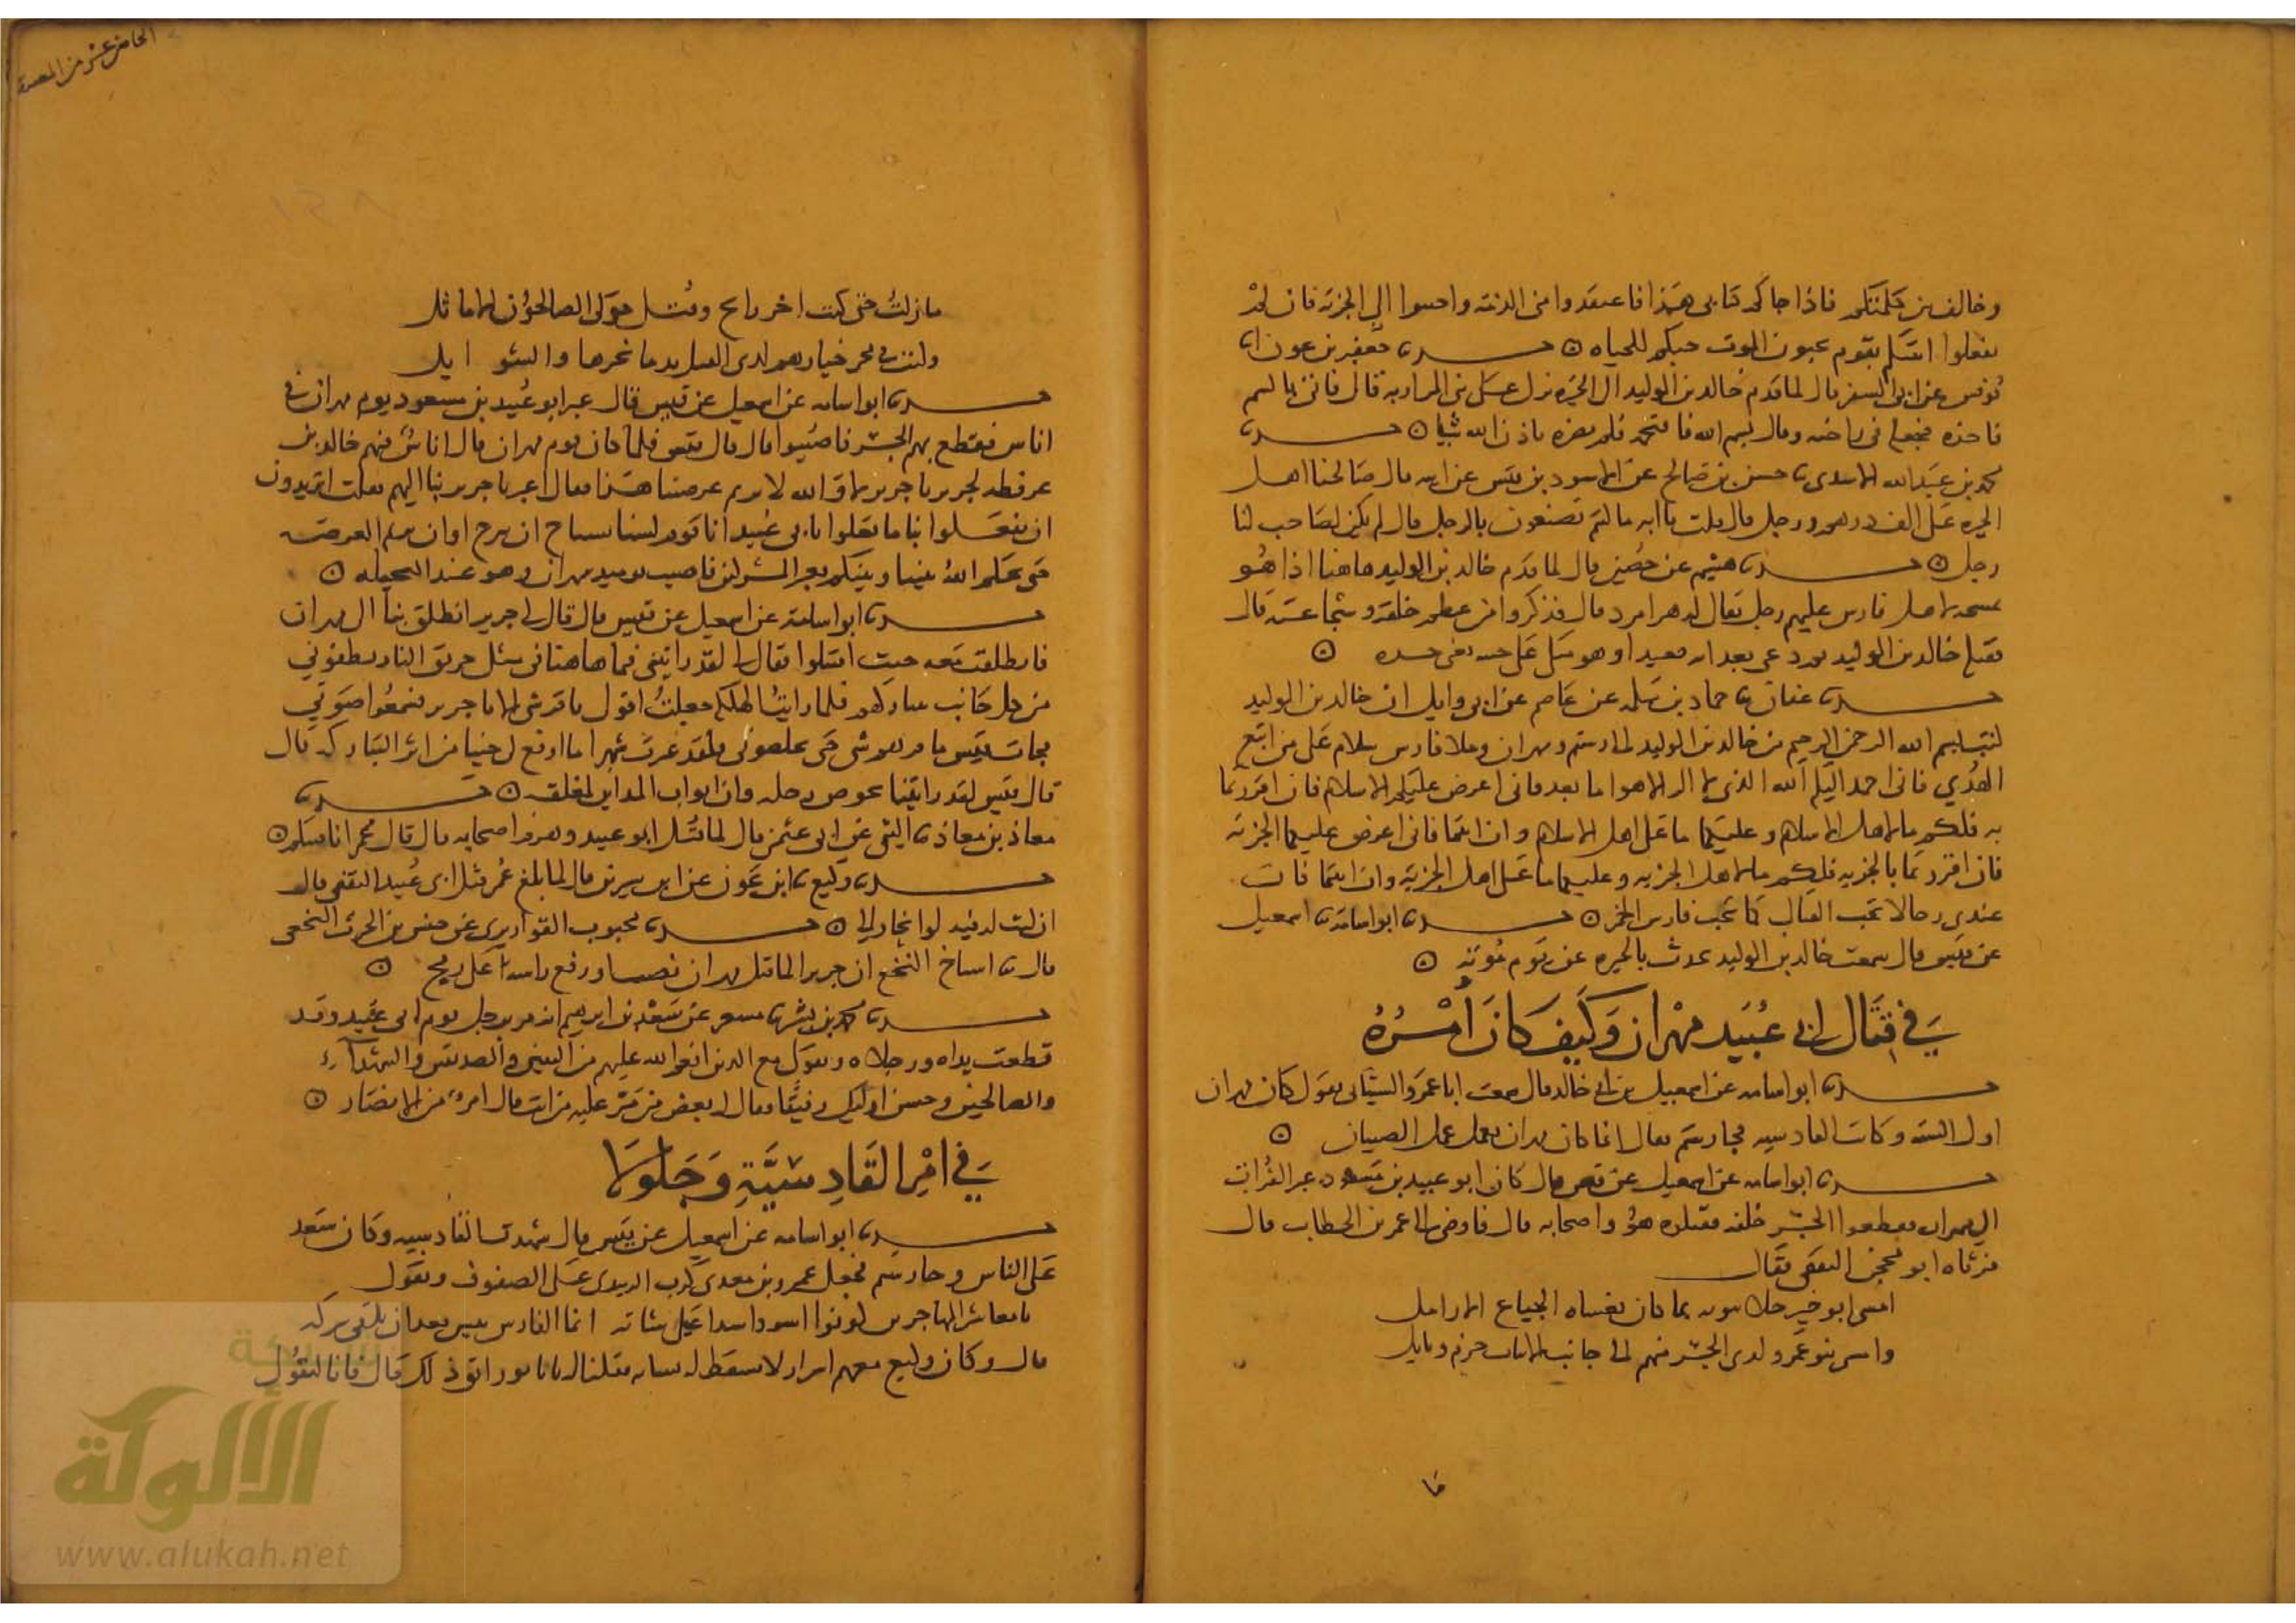 وخالف بين كلمتكم فاذا جاكم كتابي هذا فاعتقدوا مني الذمة واجبوا الي الجزية فان لم
تفعلوا اتيتكم بقوم يحبون الموت حبكم للحياه ه حدثنا جعفر بن عون انا
يونس عن ابي السفر قال لما قدم خالد بن الوليد الى الحيره نزل على بني المرازبة قال فاتى بالسم
فاخذه فجعله في راحته وقال بسم الله فاقتحمه فلم يضره باذن الله شيا ه حدثنا
محمد بن عبد الله الاسدي نا حسن بن صالح عن الاسود بن قيس عن ابيه قال صالحنا اهل
الحيره على الف درهم ورجل قال قلت يا ابه ما كنتم تصنعون بالرجل قال لم يكن لصاحب لنا
رجل ه حدثنا هشيم عن حصين قال لما قدم خالد بن الوليد هاهنا اذا هو
بمسلحه لاهل فارس عليهم رجل يقال له هزامرد قال فذكروا من عظم خلقه وشجاعته قال
فقتله خالد بن الوليد ثم دعى بغدائه فتغدا وهو متكي على جيفته يعني جسده ه
حدثنا عفان نا حماد بن سلمه عن عاصم عن ابي وايل ان خالد بن الوليد
كتب بسم الله الرحمن الرحيم من خالد بن الوليد الى رستم ومهران وملا فارس سلام على من اتبع
الهدي فاني احمد اليكم الله الذي لا اله الا هو اما بعد فاني اعرض عليكم الاسلام فان اقررتما
به فلكم ما لاهل الاسلام وعليكما ما على اهل الاسلام وان ابيتما فاني اعرض عليكما الجزية
فان اقررتما بالجزيه فلكم ما لاهل الجزيه وعليكما ما على اهل الجزية وان ابيتما فان
عندي رجالا تحب القتال كما تحب فارس الخمر ه حدثنا ابو اسامة نا اسمعيل
عن قيس قال سمعت خالد بن الوليد يحدث بالحيره عن يوم موته ه
في قتال ابي عبيد مهران وكيف كان امره
حدثنا ابو اسامه عن اسمعيل بن ابي خالد قال سمعت ابا عمرو الشيباني يقول كان مهران
اول السنه وكانت القادسيه فجا رستم فقال انما كان مهران يعمل عمل الصبيان ه
حدثنا ابو اسامه عن اسمعيل عن قيس قال كان ابو عبيد بن مسعود عبر الفرات
الى مهران فقطعوا الجسر خلفه فقتلوه هو واصحابه قال فاوصى الى عمر بن الخطاب قال
فرثاه ابو محجن الثقفي فقال
امسى ابو خير خلا بيوته بما كان يغشاه الجياع الارامل
وامسى بنو عمرو لدى الجسر منهم الى جانب الابيات حزم ونايل
فا
الخامس عشر من المصنف
مازلت حتى كنت اخر رايح وقتل حولى الصالحون الاماثل
حدثنا ابو اسامه عن اسمعيل عن قيس قال عبر ابو عبيد بن مسعود يوم مهران في
اناس فقطع بهم الجسر فاصيبوا قال قال قيس فلما كان يوم مهران قال اناس فيهم خالد بن
عرفطه لجرير يا جرير لا والله لا نريم عرصتنا هذه فقال اعبر يا جرير بنا اليهم فقلت اتريدون
ان تفعلوا بنا ما فعلوا بابي عبيد انا قوم لسنا بسباح ان نبرح او ان نريم العرصه
حتى يحكم الله بيننا وبينكم فعبر المشركون فاصيب يوميذ مهران وهو عند النخيله ه
حدثنا ابو اسامة عن اسمعيل عن قيس قال قال لي جرير انطلق بنا الى مهران
فانطلقت معه حيث اقتتلوا فقال لي لقد رايتني فيما هاهنا في مثل حريق النار يطعنوني
من كل جانب بنيازكهم فلما رايت الهلكه جعلت اقول يا فرسي الا يا جرير فسمعوا صوتي
فجات قيس ما يردهم شي حتى يخلصوني قلت فلقد عبرت شهرا ما ارفع لي جنبا من اثر النيازك قال
قال قيس لقد رايتنا نخوض دجله وان ابواب المداين لمغلقه ه حدثنا
معاذ بن معاذ نا التيمي عن ابي عثمن قال لما قتل ابو عبيد وهزم اصحابه قال قال عمر انا فيتكم ه
حدثنا وكيع نا ابن عون عن ابن سيرين قال لما بلغ عمر قتل ابي عبيد الثقفي قال
ان كنت له فيه لو انحاز الي ه حدثنا محبوب القواريري عن حنش بن الحرث النخعي
قال نا اشياخ النخع ان جريرا لما قتل مهران نصب او رفع راسه على رمح ه
حدثنا محمد بن بشر نا مسعر عن سعد بن ابرهيم انه مر برجل يوم ابي عبيد وقد
قطعت يداه ورجلاه وهو يقول مع الذين انعم الله عليهم من النبيين والصديقين والشهدآء
والصالحين وحسن اوليك رفيقا فقال له بعض من مر عليه من انت قال امرؤ من الانصار ه
في امر القادسية وجلولا
حدثنا ابو اسامه عن اسمعيل عن قيس قال شهدت القادسيه وكان سعد
على الناس وجا رستم فجعل عمرو بن معدي كرب الزبيدي على الصفوف ويقول
يا معاشر المهاجرين كونوا اسودا اشدا عنى شانه انما الفارس تيس بعد ان يلقى نيزكه
قال وكان معهم اسوار لا تسقط له نشابه فقلنا له يا با ثور اتق ذلك قال فانا لنقول
شبكة
الألوكة
www.alukah.net